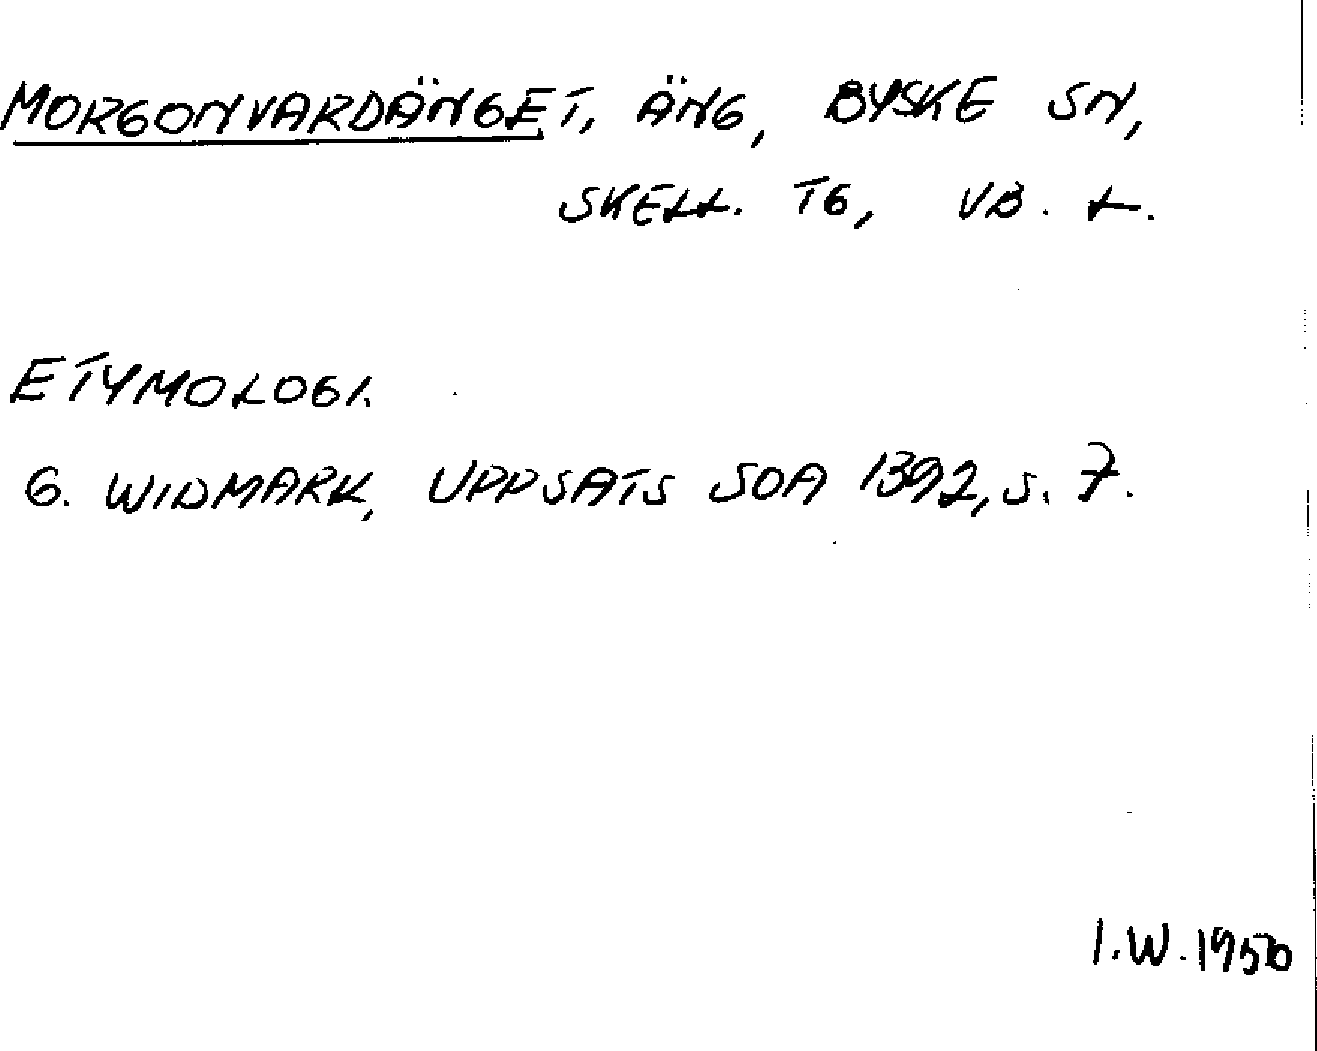 MORGONVARDÄNGET, ÄNG, BYSKE SN,
SKELL. TG, VB. L.
ETYMOLOGI.
G. WIDMARK, UPPSATS SOA 1392, S. 7.
I.W. 1950